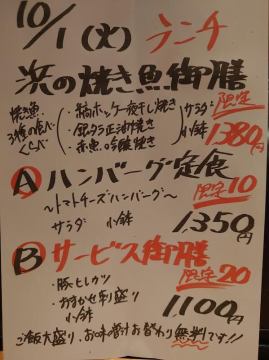 10/1(火) ランチ
浜の焼き魚御膳
焼き魚3種の食べくらべ
・縞ホッケ一夜干し焼き
・銀ダラ正油焼き
・赤魚の吟醸焼き
サラダ
小鉢
限定
1,380円
Ⓐハンバーグ定食
〜トマトチーズハンバーグ〜
限定10
サラダ 小鉢
1,350円
Ⓑサービス御膳
限定20
・豚ヒレカツ
・おまかせ刺し盛り
小鉢
1,100円
ご飯大盛り、お味噌汁お替わり無料です!!